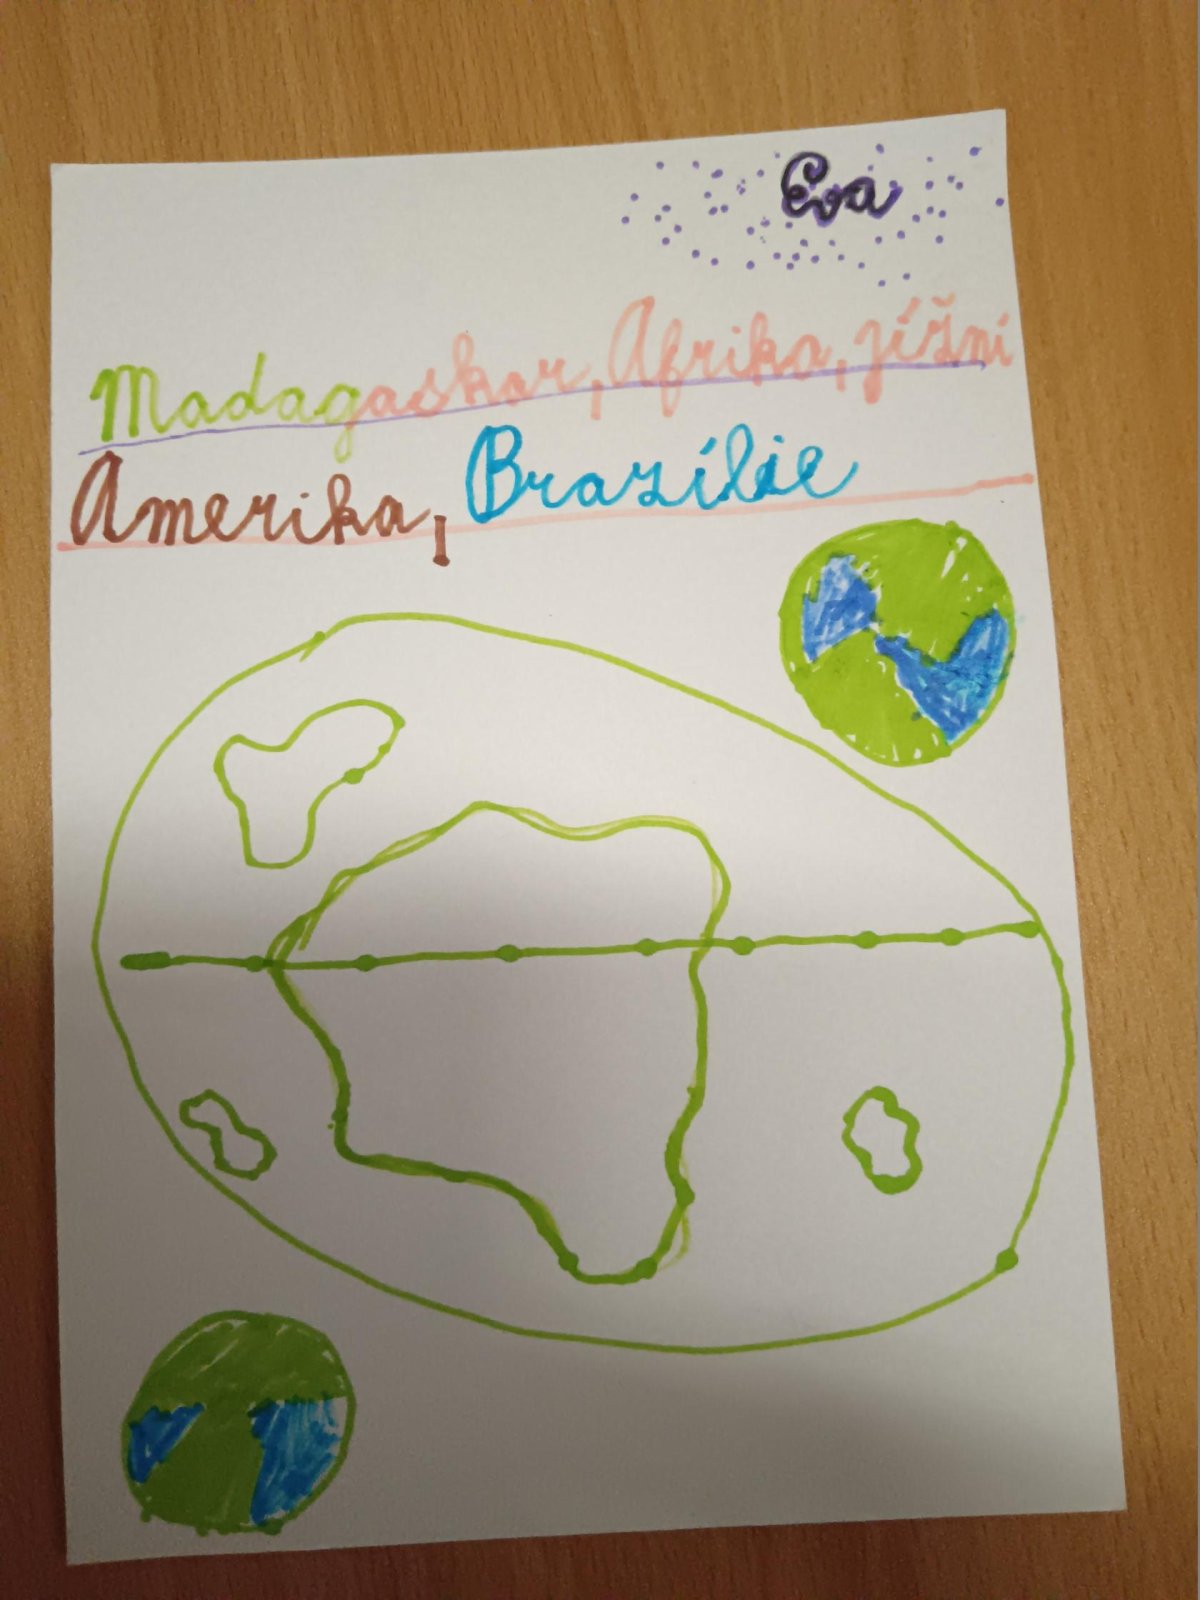 Eva
Madagaskar, Afrika, jížní
Amerika, Brazílie